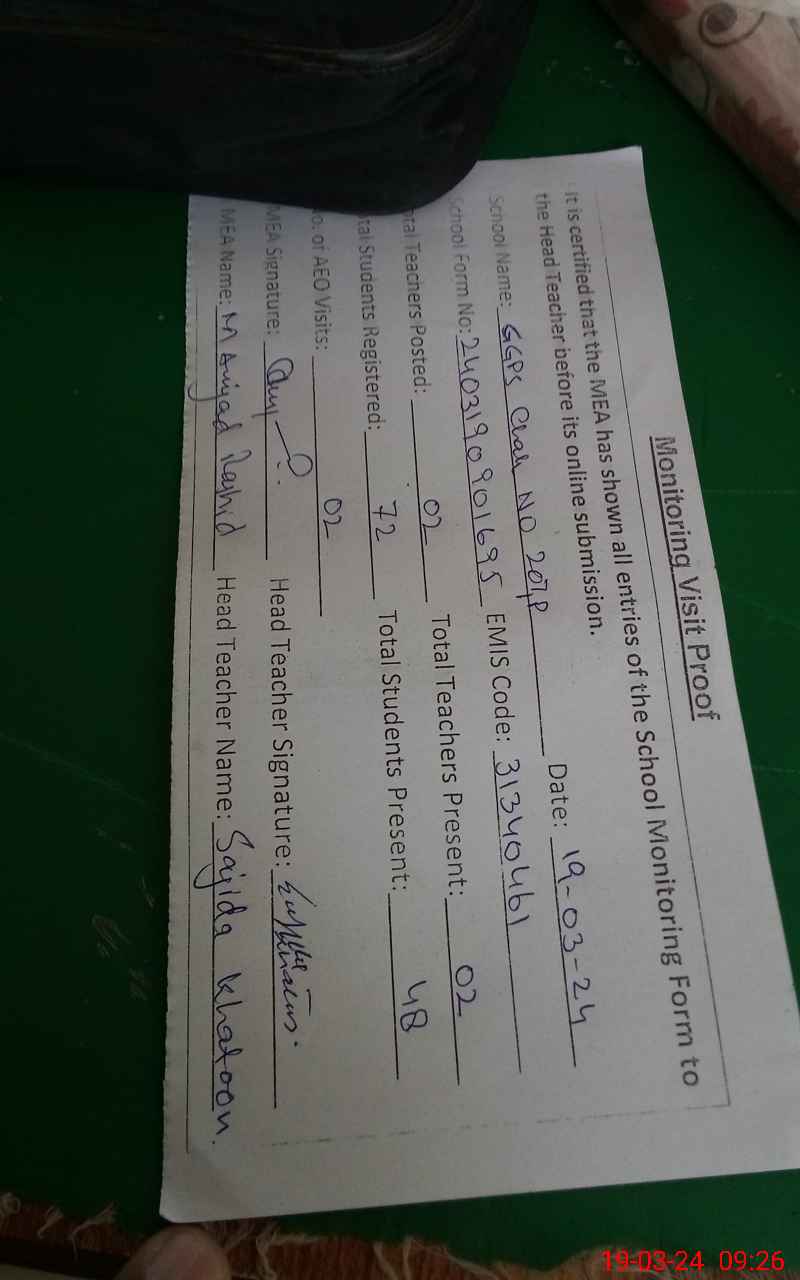 Monitoring Visit Proof
It is certified that the MEA has shown all entries of the School Monitoring Form to
the Head Teacher before its online submission.
School Name: GGPS Chak NO 207P Date: 19-03-24
School Form No: 2403190901695 EMIS Code: 31340461
Total Teachers Posted: 02 Total Teachers Present: 02
Total Students Registered: 72 Total Students Present: 48
No. of AEO Visits: 02
MEA Signature: Head Teacher Signature:
MEA Name: M Amjad Rashid Head Teacher Name: Sajida Khatoon.
19-03-24 09:26